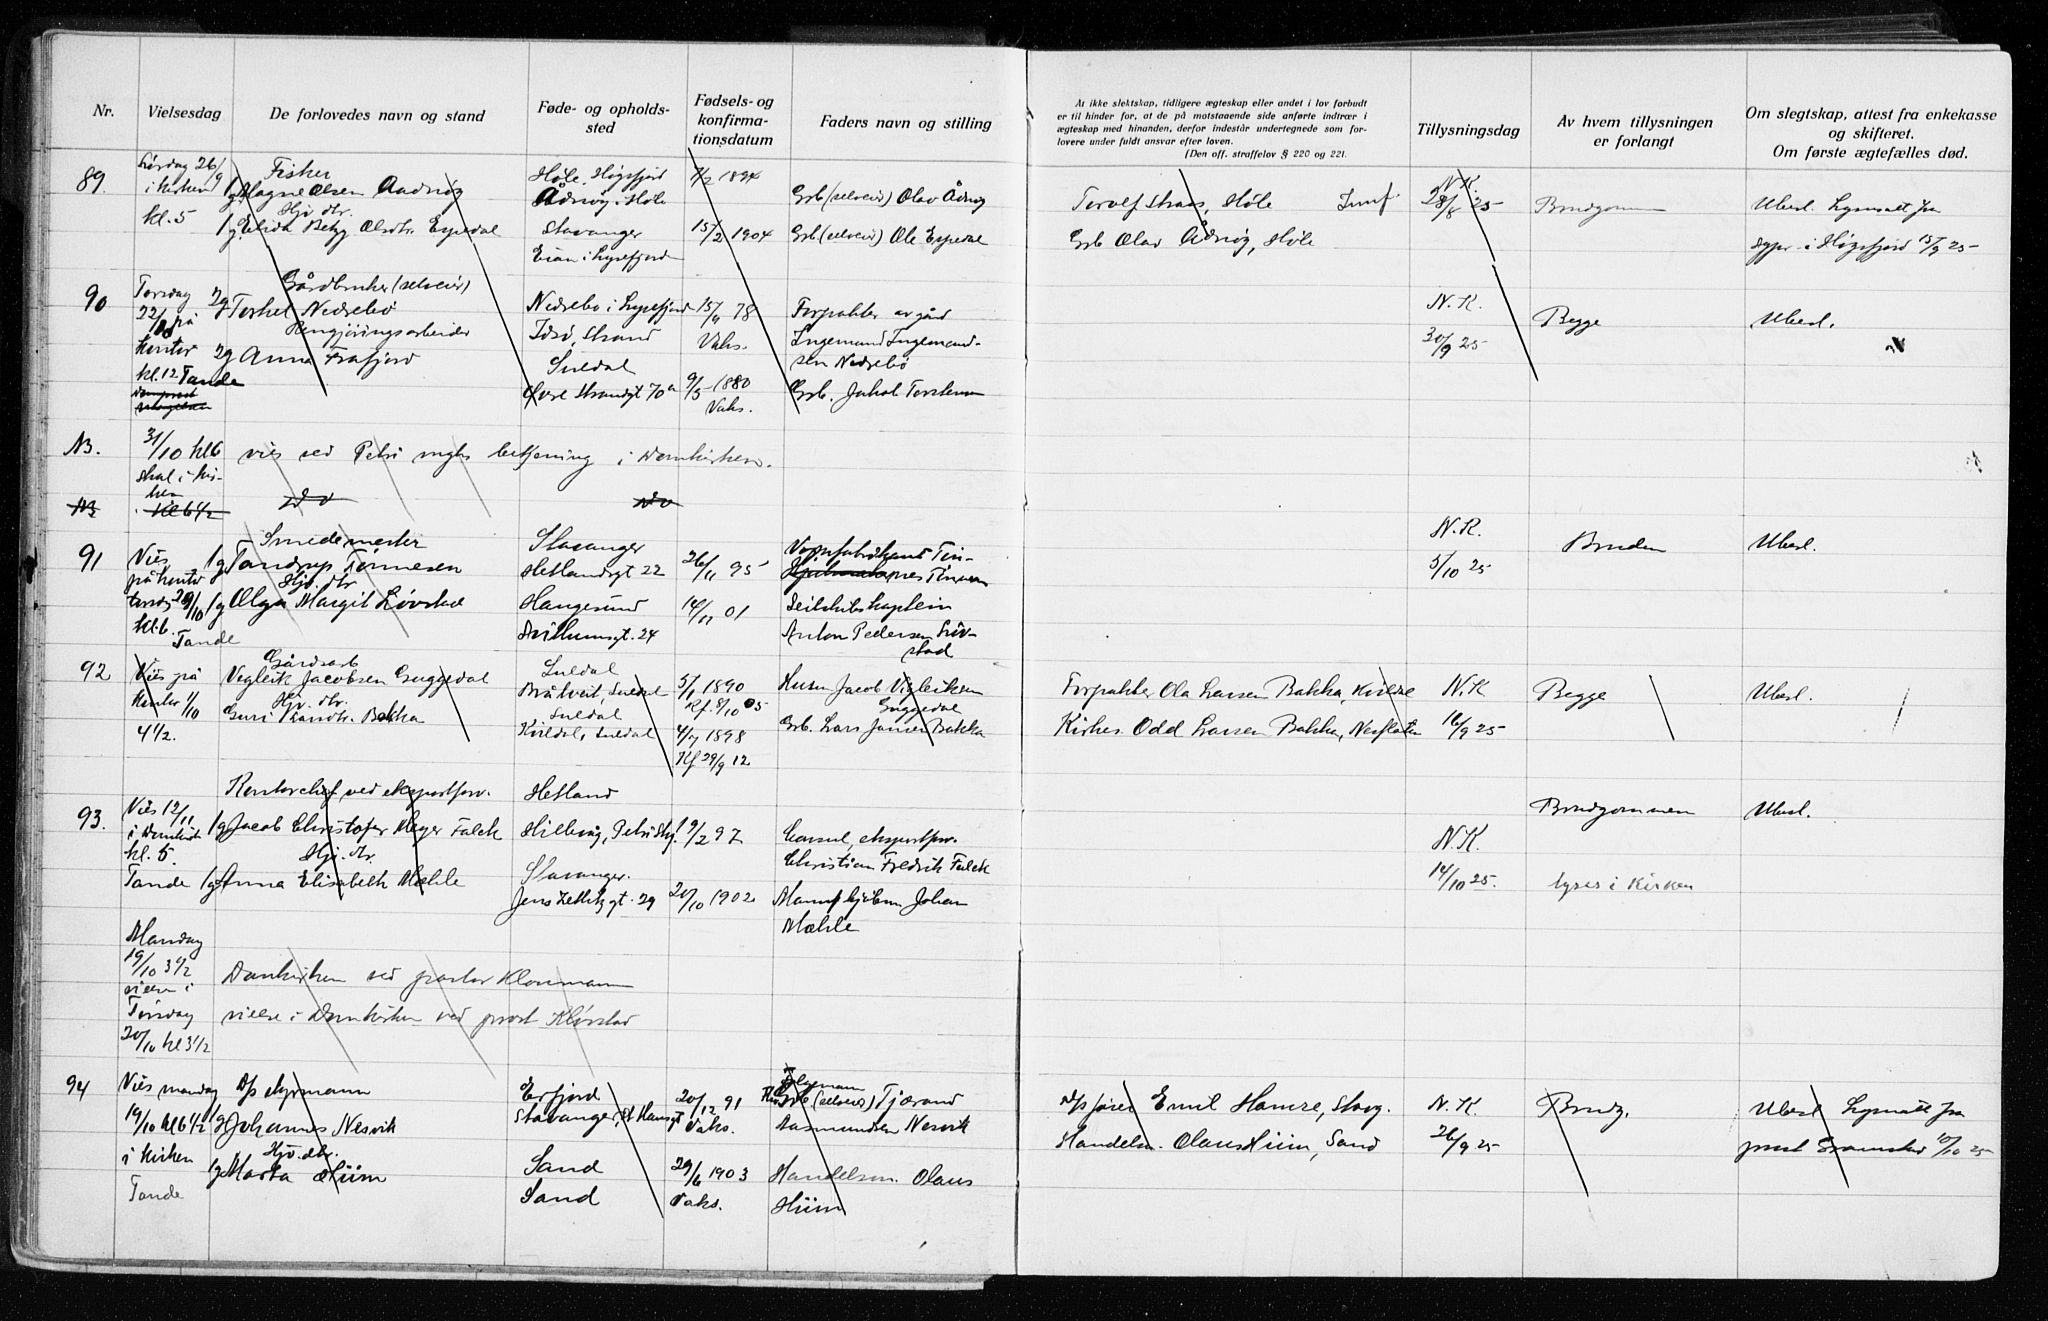 Nr.
Vielsesdag
De forlovedes navn og stand
Føde- og opholds-
sted
Fødsels- og
konfirma-
tionsdatum
Faders navn og stilling
At ikke slektskap, tidligere ægteskap eller andet i lov forbudt
er til hinder for, at de på motstaaende side anførte indtrær i
ægteskap med hinanden, derfor indestår undertegnede som for-
lovere under fuldt ansvar efter loven.
(Den off. straffelov § 220 og 221.
Tillysningsdag
Av hvem tillysningen
er forlangt
Om slegtskap, attest fra enkekasse
og skifteret.
Om første ægtefælles død.
89.
Lørdag 26/9
i kirken
kl. 5
Fisker
1g Magne Olsen Aadnøy
Hjv. dtr.
1g Elida Betzy Olsdtr. Espedal
Høle, Høgsfjord
Ådnøy i Høle
Stavanger
Eian i Lysefjord
7/2 1894
15/2 1904
Grb (selveier) Olav Ådnøy
Grb (selveier) Ole Espedal
Høle
Grb Olav Ådnøy, Høle
N.K.
28/8 25
Brudgommen
Uberl. Lysnatt fra
i Høgsfjord 15/9 25
90
Torsdag
22/10 på
kontor
kl. 12 Tande
Gårdbruker (selveier)
2g Torkel Nedrebø
Rengjøringsarbeider
2g Anna Frafjord
Nedrebø i Lysefjord
Idsø, Strand
Suldal
Øvre Strandgt 70a
15/11 78
Vaks.
9/5 1880
Vaks.
Forpakter av gård
Ingemund Ingemund-
sen Nedrebø
Grb. Jakob Torstensen
N.K.
30/9 25
Begge
Uberl.
NB.
31/10 kl 6
skal i kir-
ken
vies ved Petri mghs betjening i Domkirken.
NB
Kl 6 1/2
Do
Do
91
Vies
på kontor
torsdag 29/10
kl. 6.
Tande
Smedemester
1g Tandrup Tønnesen
Hjv. dtr
1g Olga Margit Løvstad
Stavanger
Hetlandsgt 22
Haugesund
26/11 95
14/11 01
Seilskibskaptein
Anton Pedersen Løv-
stad
N.K.
5/10 25
Bruden
Uberl.
92
Vies på
kontor 1/10
4 1/2.
Gårdsarb
Vigleik Jacobsen Guggedal
Hjv. dtr.
Guri Larsdtr. Bakka
Suldal
Bråtveit, Suldal
Suldal
Kvildal, Suldal
5/1 1890
Kf. 8/10 05
4/7 1898
Kf 29/9 12
Husm Jacob Vigleiksen
Guggedal
Grb. Lars Jansen Bakka
Forpakter Ola Larsen Bakka, Kvildal
Kirkes. Odd Larsen Bakka, Nesflaten
N.K
16/9 25
Begge
Uberl.
93.
Vies 12/11
i Domkirken
kl. 5
Tande
Kontorchef ved eksportforr.
1g Jacob Christofer Meyer Falck
Hjv. dtr.
1g Anna Elisabeth Mæhle
Hetland
Hillevåg, Petri Mgh
Stavanger.
Jens Zetlitzgt. 29
19/2 97
20/10 1902
Consul, eksportforr.
Christian Fredrik Falck
Manufkjøbm Johan
Mæhle
N.K.
14/10 25.
Brudgommen
lyses i Kirken
Uberl.
Mandag
19/10 3 1/2
vielse i
Domkirken ved pastor Klonmann
Torsdag
20/10 kl 3 1/2
vielse i Domkirken ved prost Kløvstad
94
Vies mandag
19/10 kl 6 1/2
i kirken
Tande
D/s styrmann
1g Johannes Nesvik
Hjv. dtr.
1g Marta Hiim
Erfjord
Stavanger, St Hansgt 7
Sand
Sand
20/12 91
Vaks.
29/6 1903
Vaks.
Grb (selveier) Tjærand
Aasmundsen Nesvik
Handelsm. Olaus
Hiim
D/s fører Emil Hamre, Stavg.
Handelsm. Olaus Hiim, Sand
N.K.
26/9 25
Brudg.
Uberl Lysnatt fra
prost 10/10 25